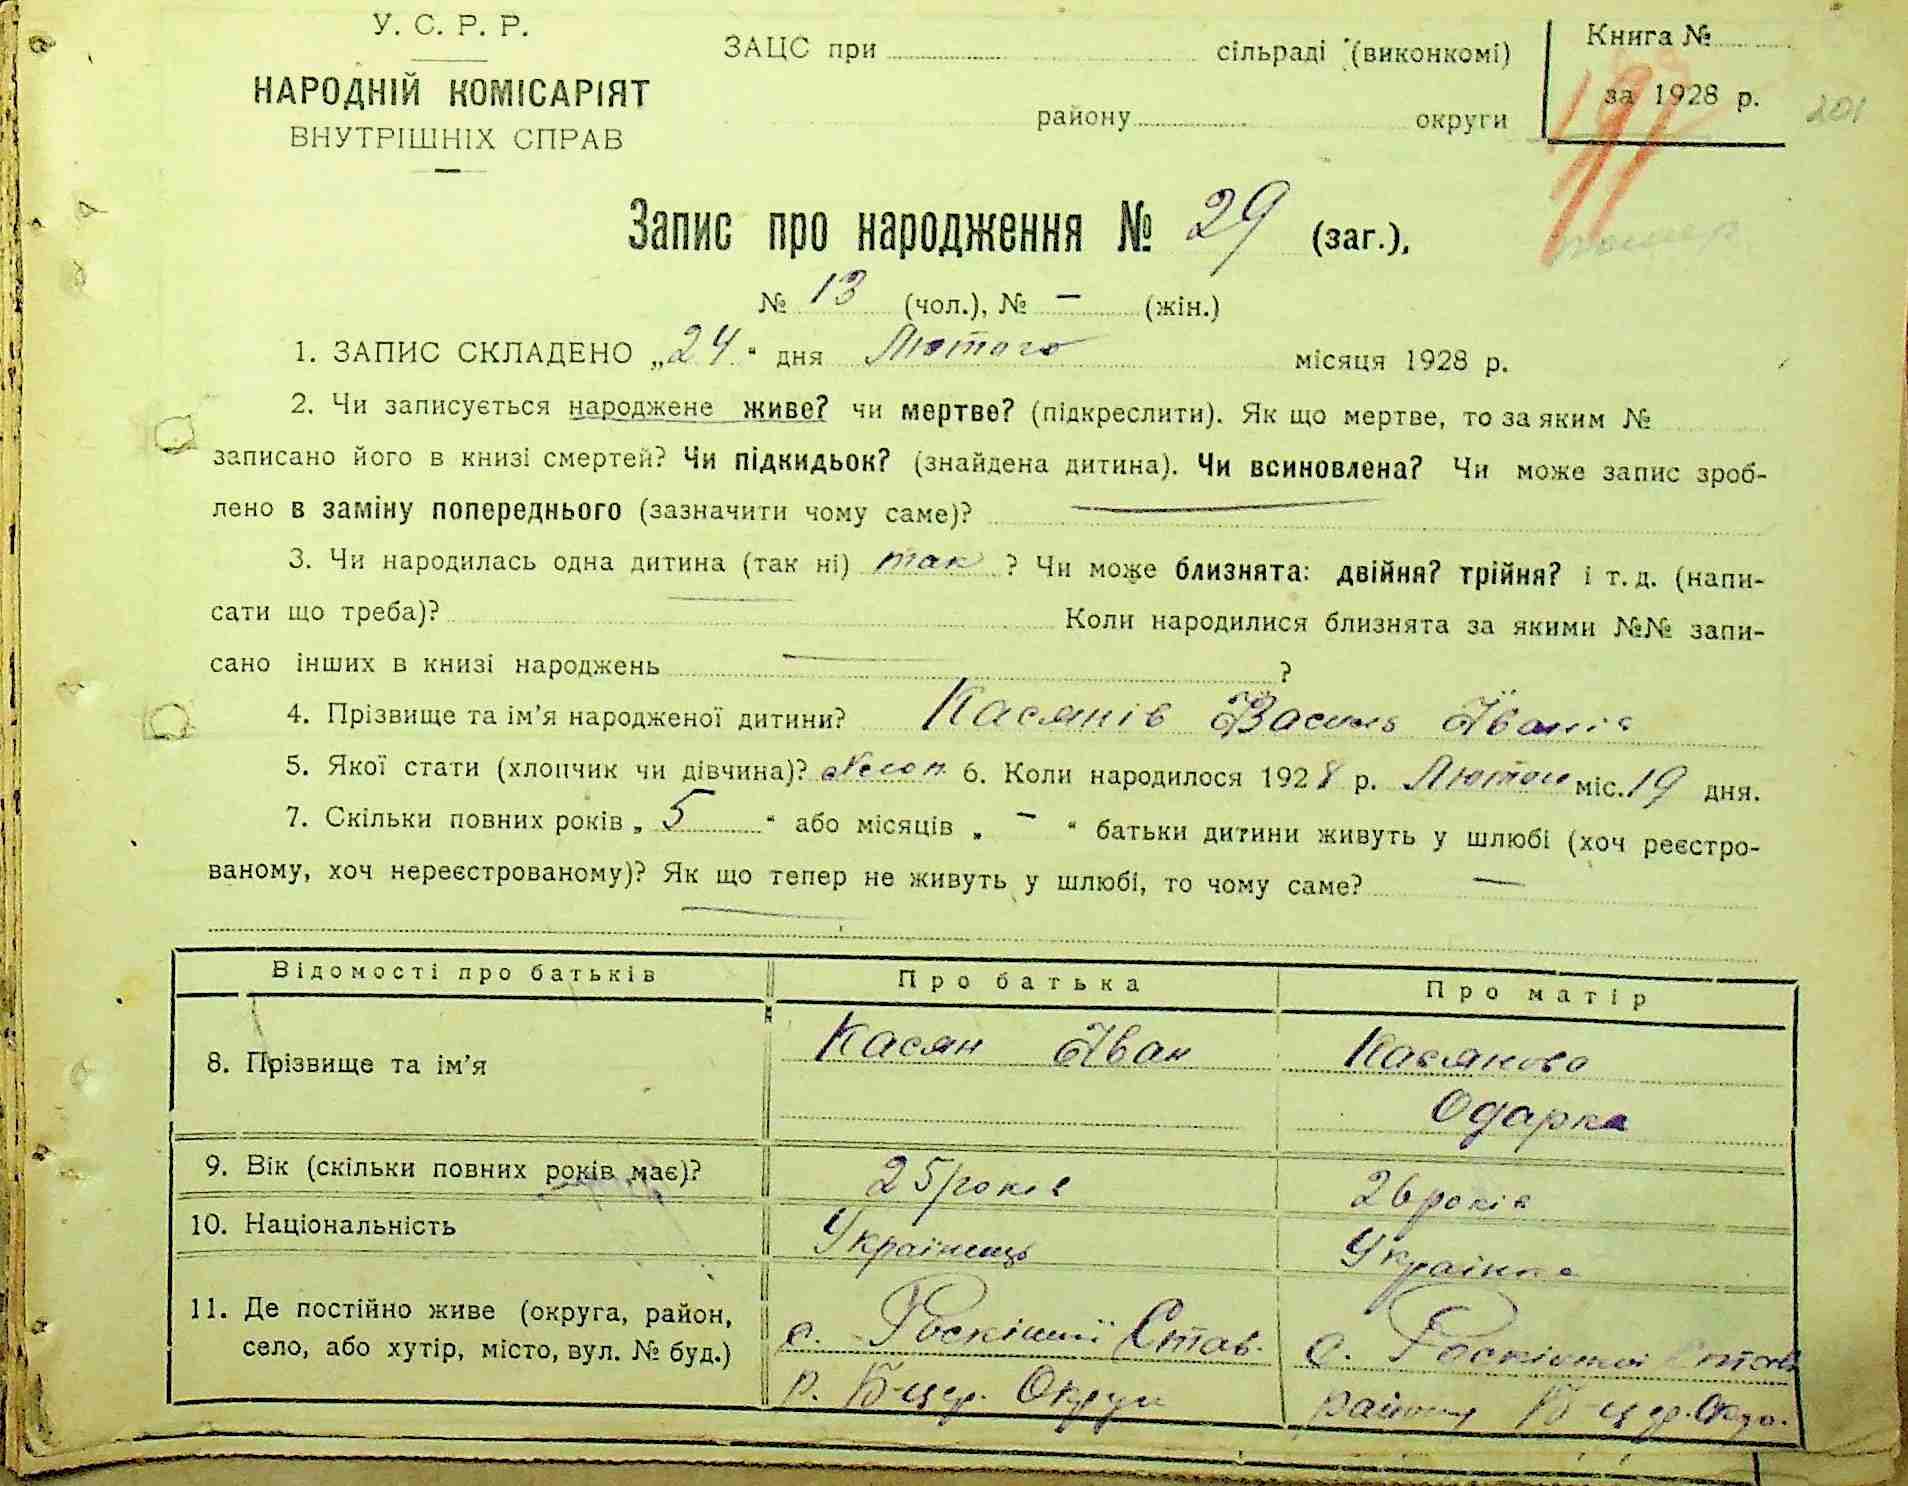 У. С. Р. Р.
НАРОДНІЙ КОМІСАРІЯТ
ВНУТРІШНІХ СПРАВ
ЗАЦС при сільраді (виконкомі)
району округи
Книга №
за 1928 р.
201
Запис про народження № 29 (заг.),
№ 13 (чол.), № — (жін.)
1. ЗАПИС СКЛАДЕНО „24“ дня Лютого місяця 1928 р.
2. Чи записується народжене живе? чи мертве? (підкреслити). Як що мертве, то за яким №
записано його в книзі смертей? Чи підкидьок? (знайдена дитина). Чи всиновлена? Чи може запис зроб-
лено в заміну попереднього (зазначити чому саме)? —
3. Чи народилась одна дитина (так ні) так ? Чи може близнята: двійня? трійня? і т. д. (напи-
сати що треба)? — Коли народилися близнята за якими №№ запи-
сано інших в книзі народжень — ?
4. Прізвище та ім’я народженої дитини? Касянів Василь Іванів
5. Якої стати (хлопчик чи дівчина)? 6. Коли народилося 1928 р. Лютого міс. 19 дня.
7. Скільки повних років „ 5 “ або місяців „ — “ батьки дитини живуть у шлюбі (хоч реєстро-
ваному, хоч нереєстрованому)? Як що тепер не живуть у шлюбі, то чому саме? —
Відомості про батьків Про батька Про матір
8. Прізвище та ім’я Касян Іван Касянова
Одарка
9. Вік (скільки повних років має)? 25 років 26 років
10. Національність Українець Українка
11. Де постійно живе (округа, район,
село, або хутір, місто, вул. № буд.)
с. Роскішної Став.
р. Б-цер. Округи
с. Роскішної Став
району Б-цер. Окро.